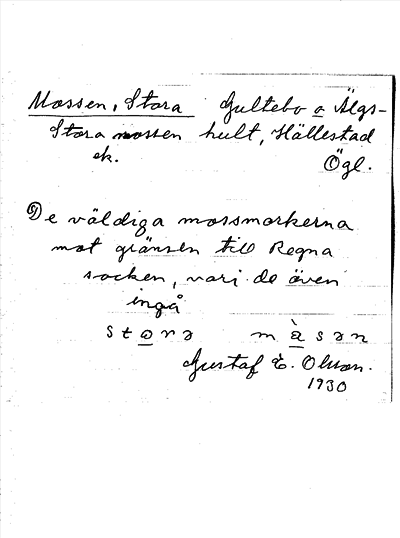 Mossen, Stora Gultebo o Älgs-
Stora mossen hult, Hällestad
ek. Ögl.
De väldiga mossmarkerna
mot gränsen till Regna
socken, vari de även
ingå
stɷrə màsən
Gustaf E. Olsson.
1930